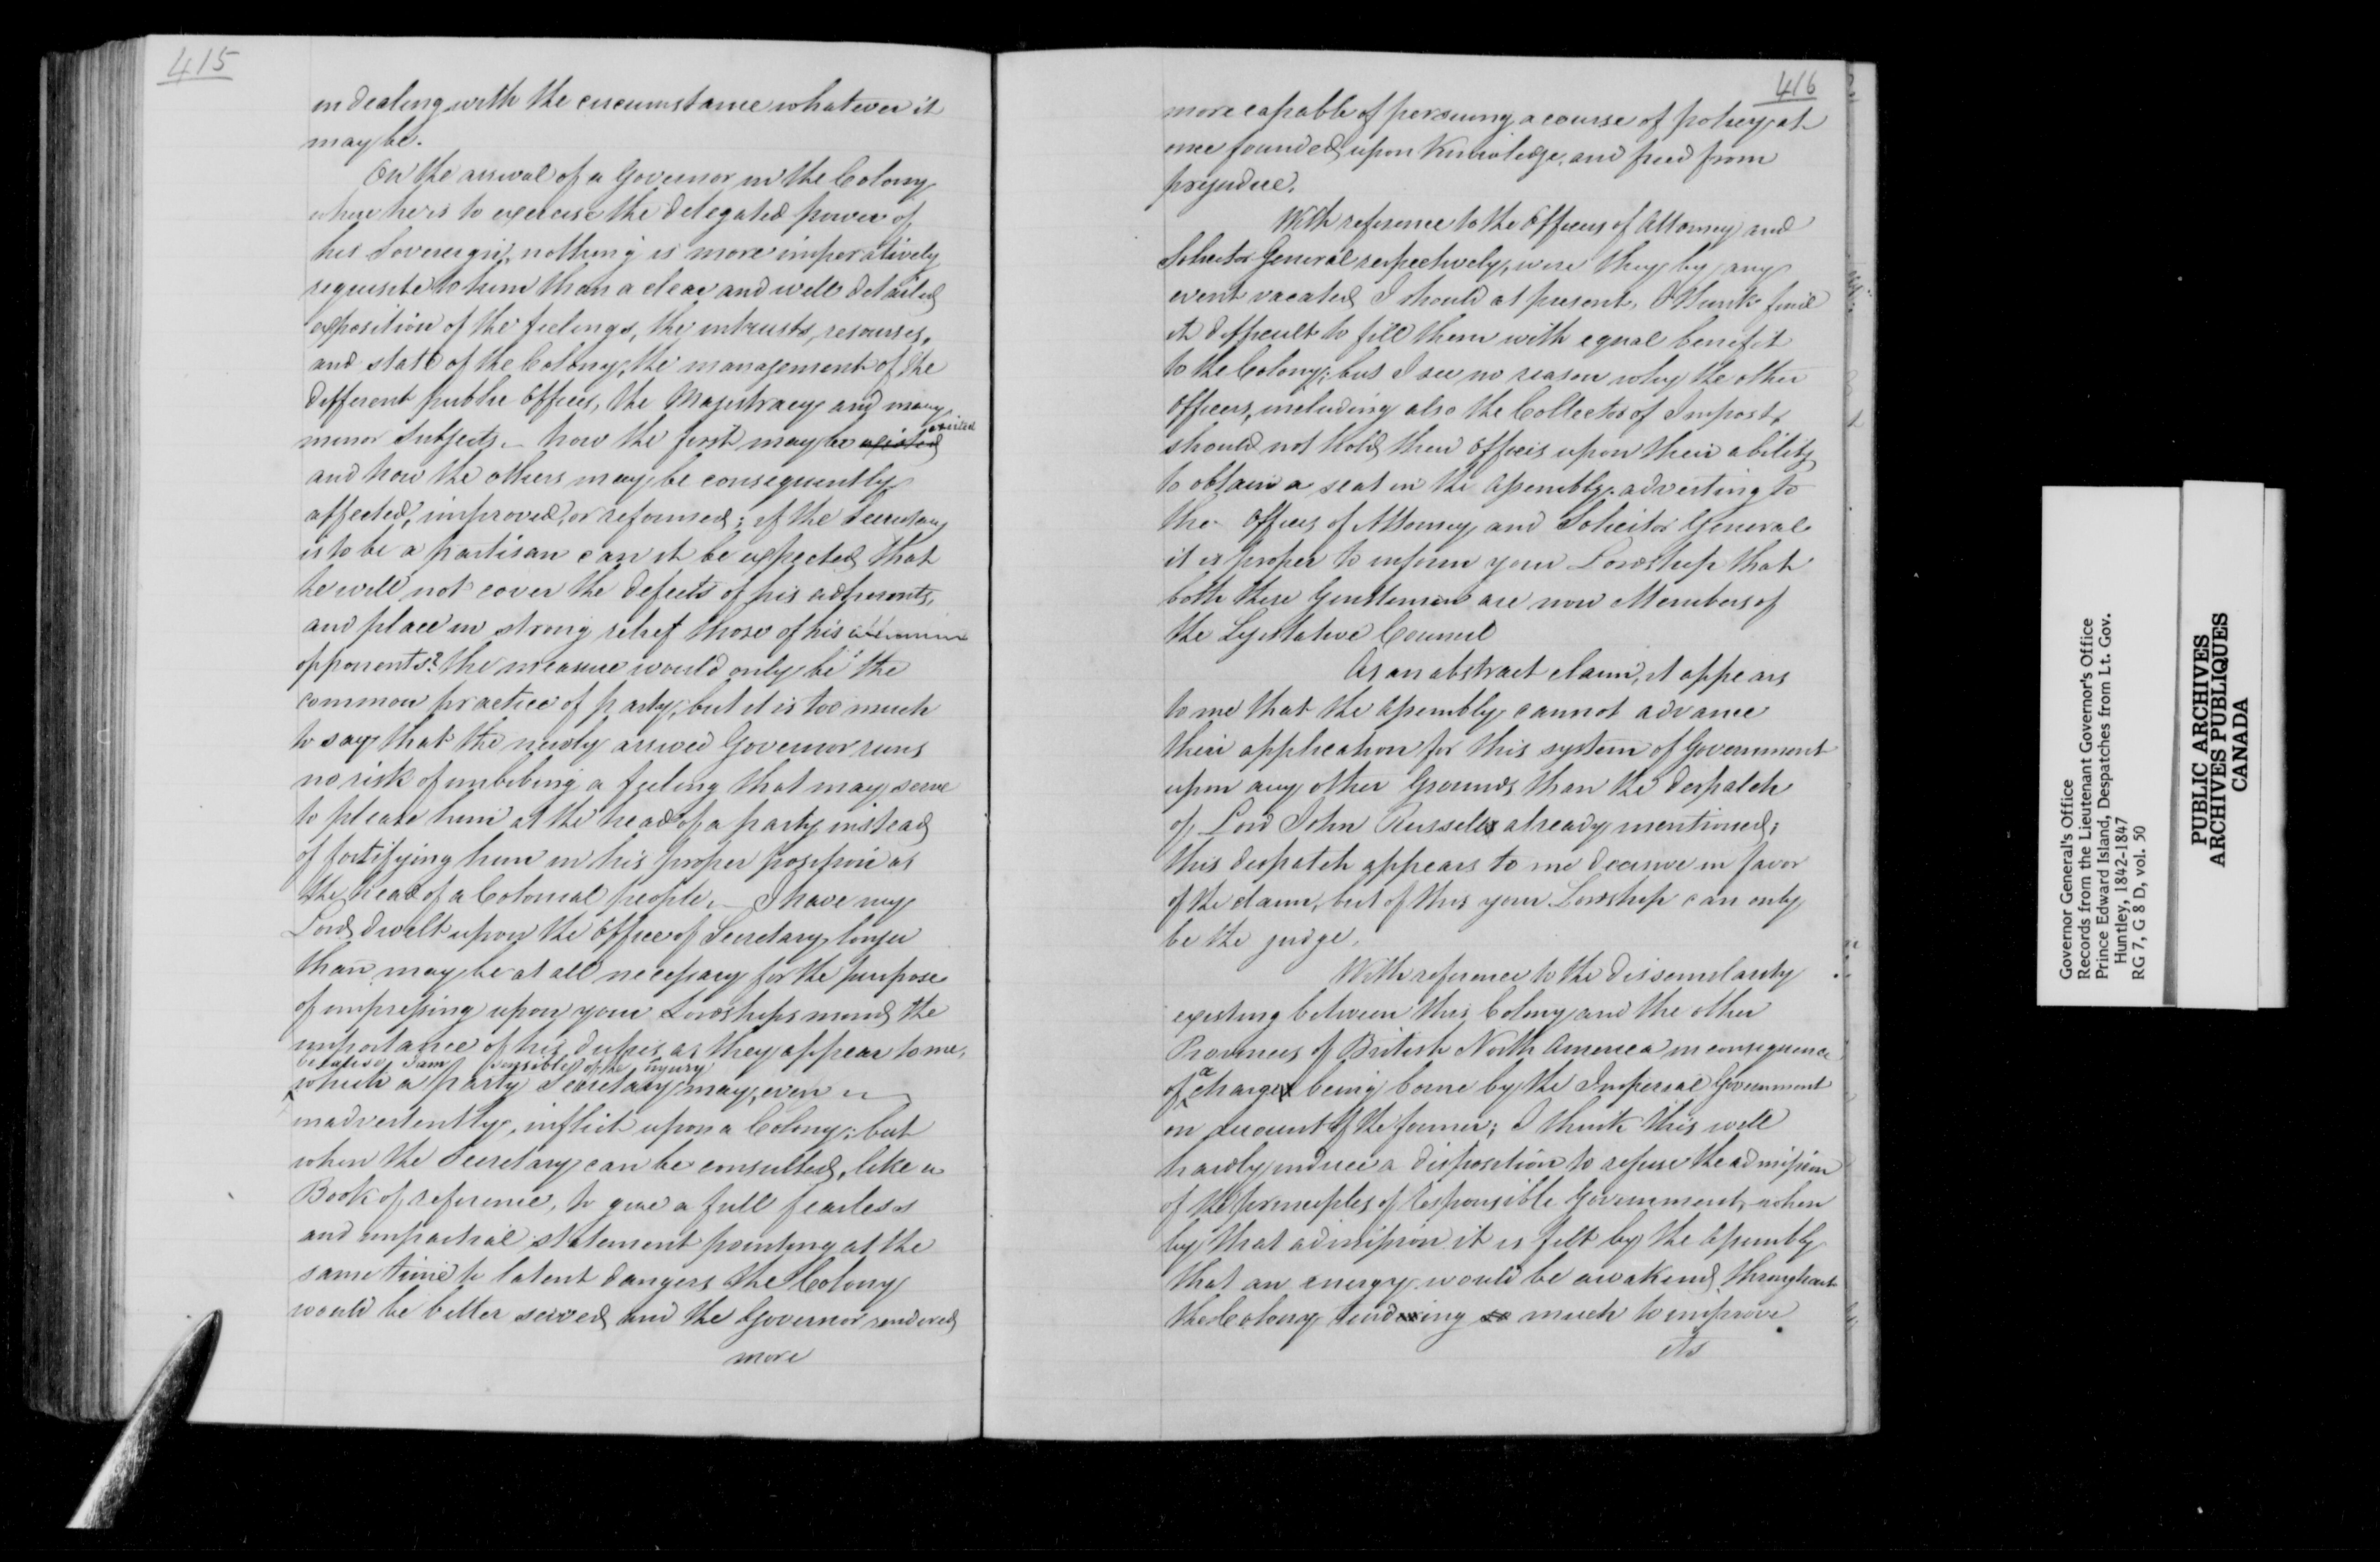 415
in dealing with the circumstance whatever it
may be.
On the arrival of a Governor in the Colony
where he is to exercise the delegated power of
his Sovereign, nothing is more imperatively
requisite to him than a clear and well detailed
exposition of the feelings, the intrusts, resourses,
and state of the Colony, the management of the
different public offices, the Magistracy and many
minor subjects. — how the first may be excited
and how the others may be consequently
affected, improved, or reformed; if the Secretary
is to be a partisan can it be expected that
he will not cover the defects of his adherents,
and place in strong relief those of his
opponents? the measure would only be the
common practice of party, but it is too much
to say that the newly arrived Governor runs
no risk of imbibing a feeling that may serve
to please him at the head of a party instead
of fortifying him in his proper position as
the head of a Colonial people. — I have my
Lord, dwelt upon the office of Secretary longer
than may be at all necessary for the purpose
of impressing upon your Lordships mind the
importance of his duties as they appear to me,
because I am sensible of the injury
which a party Secretary may, even
inadvertently, inflict upon a Colony; but
when the Secretary can be consulted, like a
Book of reference, to give a full fearless
and impartial statement pointing at the
same time to latent dangers the Colony
would be better served and the Governor rendered
more
416
more capable of persuing a course of policy at
once founded upon Knowledge, and freed from
prejudice.
With reference to the Offices of Attorney and
Solicitor General respectively, were they by any
event vacated I should at present, I think find
it difficult to fill them with equal benefit
to the Colony; but I see no reason why the other
officers, including also the Collector of Impost,
should not hold their offices upon their ability
to obtain a seat in the Assembly. adverting to
the Offices of Attorney and Solicitor General
it is proper to inform your Lordship that
both these Gentlemen are now Members of
the Legislative Council
As an abstract claim, it appears
to me that the Assembly cannot advance
their application for this system of Government
upon any other Grounds than the despatch
of Lord John Russell already mentioned;
this despatch appears to me decisive in favor
of the claim, but of this your Lordship can only
be the judge.
With reference to the dissimilarity
existing between this Colony and the other
Provinces of British North America in consequence
of a charge being borne by the Imperial Government
on account of the former; I think this will
hardly induce a disposition to refuse the admission
of the principles of Responsible Government, when
by that admission it is felt by the Assembly
that an energy would be awakened throughout
the Colony tending so much to improve
its
Governor General's Office
Records from the Lieutenant Governor's Office
Prince Edward Island, Despatches from Lt. Gov.
Huntley, 1842-1847
RG 7, G 8 D, vol. 50
PUBLIC ARCHIVES
ARCHIVES PUBLIQUES
CANADA